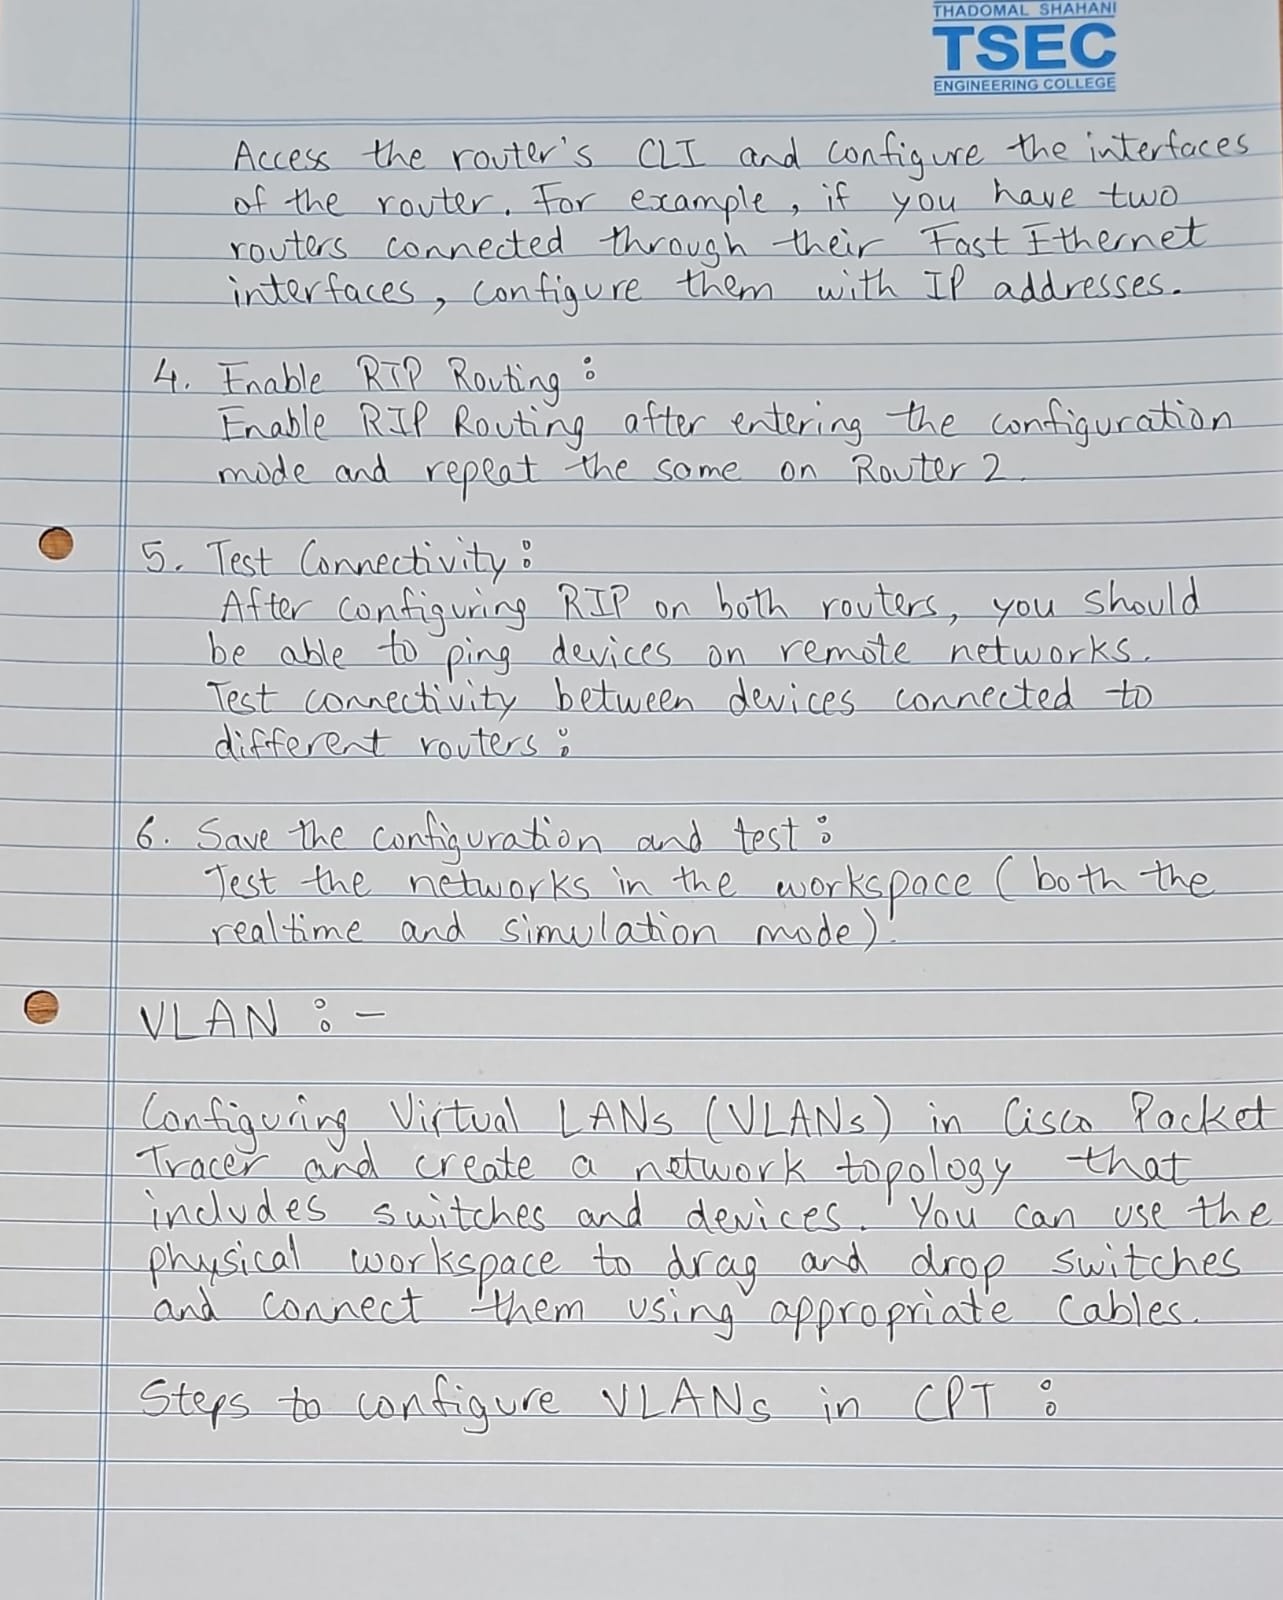 THADOMAL SHAHANI
TSEC
ENGINEERING COLLEGE
Access the router's CLI and configure the interfaces
of the router. For example, if you have two
routers connected through their Fast Ethernet
interfaces, configure them with IP addresses.
4. Enable RIP Routing :
Enable RIP Routing after entering the configuration
mode and repeat the same on Router 2.
5. Test Connectivity :
After configuring RIP on both routers, you should
be able to ping devices on remote networks.
Test connectivity between devices connected to
different routers :
6. Save the configuration and test :
Test the networks in the workspace (both the
realtime and simulation mode).
VLAN : -
Configuring Virtual LANs (VLANs) in Cisco Packet
Tracer and create a network topology that
includes switches and devices. You can use the
physical workspace to drag and drop switches
and connect them using appropriate cables.
Steps to configure VLANs in CPT :